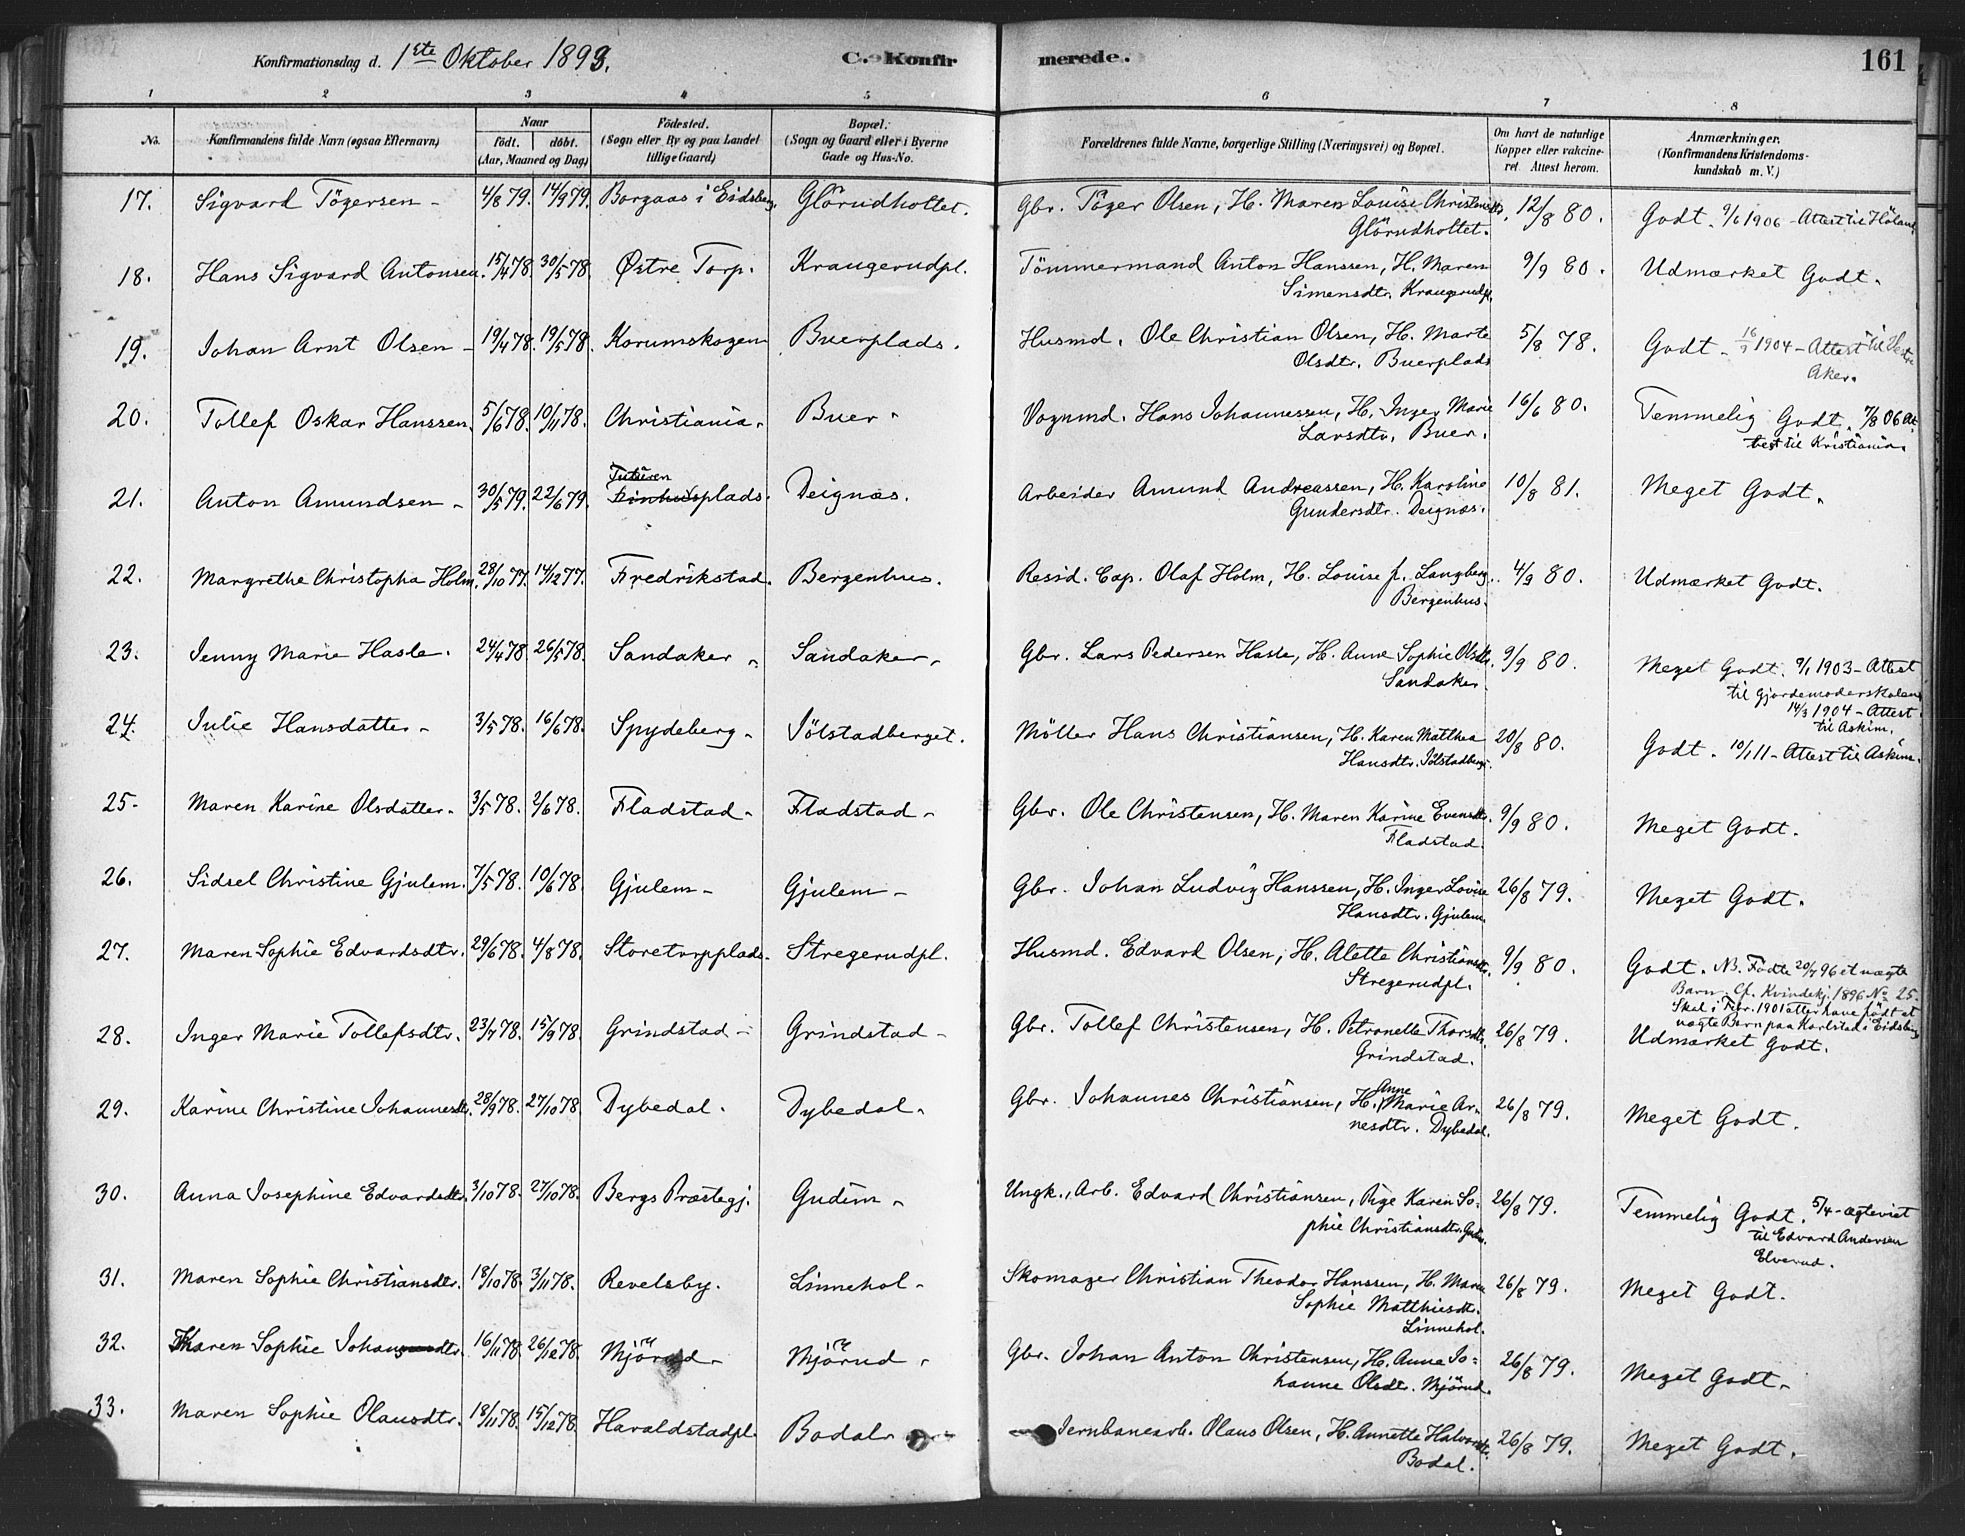 Konfirmationsdag d. 1ste Oktober 1893. C. Konfirmerede. 161
1 2 3 4 5 6 7 8
No. Konfirmandens fulde Navn (ogsaa Efternavn) Naar født. døbt. (Aar, Maaned og Dag) Fødested. (Sogn eller By og paa Landet tillige Gaard) Bopæl. (Sogn og Gaard eller i Byerne Gade og Hus-No. Forældrenes fulde Navne, borgerlige Stilling (Næringsvei) og Bopæl. Om havt de naturlige Kopper eller vakcineret Attest herom. Anmærkninger. (Konfirmandens Kristendomskundskab m. V.)
17. Sigvard Tögersen - 4/8 79. 14/9 79. Borgaas i Eidsberg Glörudholtet. Gbr. Töger Olsen, H. Maren Louise Christensdtr. 12/8 80. Godt. 9/6 1906 - Attest til Höland
Glörudholtet.
18. Hans Sigvard Antonsen. 15/4 78. 30/5 78. Østre Torp. Kraugerudpl. Tömmermand Anton Hanssen, H. Maren 9/9 80. Udmærket Godt.
Simensdtr. Kraugerudpl.
19. Johan Arnt Olsen - 19/4 78. 19/5 78. Korumskogen Buerplads. Husmd. Ole Christian Olsen, H. Marte 5/8 78. Godt - 16/9 1904 - Attest til Vestre
Olsdtr. Buerplads Aker.
20. Tollef Oskar Hanssen. 5/6 78. 10/11 78. Christiania. Buer - Vognmd. Hans Johannessen, H. Inger Marie 16/6 80. Temmelig Godt. 7/8 06 At-
Larsdtr. Buer. test til Kristiania.
21. Anton Amundsen - 30/5 79. 22/6 79. plads. Deignæs. Arbeider Amund Andreassen, H. Karoline 10/8 81. Meget Godt.
Gundersdtr. Deignæs.
22. Margrethe Christopha Holm. 28/10 77. 14/12 77. Fredrikstad. Bergenhus. Resid. Cap. Olaf Holm, H. Louise f. Langberg. 4/9 80. Udmærket Godt.
Bergenhus.
23. Jenny Marie Hasle. 24/4 78. 26/5 78. Sandaker - Sandaker - Gbr. Lars Pedersen Hasle, H. Anne Sophie Olsdtr. 9/9 80. Meget Godt. 9/1 1903 - Attest
Sandaker. til Gjordemoderskolen
14/3 1904 - Attest
til Askim.
24. Julie Hansdatter - 3/5 78. 16/6 78. Spydeberg - Jölstadberget. Möller Hans Christiansen, H. Karen Matthea 20/8 80. Godt. 10/1 11 - Attest til Askim.
Hansdtr. Jölstadberget.
25. Maren Karine Olsdatter. 3/5 78. 2/6 78. Fladstad - Fladstad - Gbr. Ole Christensen, H. Maren Karine Evensdtr. 9/9 80. Meget Godt.
Fladstad
26. Sidsel Christine Gjulem. 7/5 78. 10/6 78. Gjulem - Gjulem - Gbr. Johan Ludvig Hanssen, H. Inger Lovise 26/8 79. Meget Godt.
Hansdtr. Gjulem
27. Maren Sophie Edvardsdtr. 29/6 78. 4/8 78. Storetorpplads. Stregerudpl. Husmd. Edvard Olsen, H. Alette Christiansdtr. 9/9 80. Godt. NB. Födte 20/7 96 et uægte
Stregerudpl. Barn. Cf. Kvindekj. 1896 No 25.
Skal i Febr. 1901 atter have födt et
uægte Barn paa Karlstad i Eidsberg
28. Inger Marie Tollefsdtr. 23/7 78. 15/9 78. Grindstad - Grindstad - Gbr. Tollef Christensen, H. Petronelle Thorsdtr. 26/8 79. Udmærket Godt.
Grindstad.
29. Karine Christine Johannesdtr. 28/9 78. 27/10 78. Dybedal. Dybedal. Gbr. Johannes Christiansen, H. Anne Marie Ar- 26/8 79. Meget Godt.
nesdtr. Dybedal.
30. Anna Josephine Edvardsdtr. 3/10 78. 27/10 78. Bergs Præstegj. Gudim - Ungk., Arb. Edvard Christiansen, Pige Karen So- 26/8 79. Temmelig Godt. 5/4 - ægteviet
phie Christiansdtr. Gudim. til Edvard Andersen
Elverud.
31. Maren Sophie Christiansdtr. 18/10 78. 3/11 78. Revelsby. Linnehol - Skomager Christian Theodor Hanssen, H. Maren 26/8 79. Meget Godt.
Sophie Matthiesdtr.
Linnehol.
32. Karen Sophie Johansdtr. 16/11 78. 26/12 78. Mjörud - Mjörud - Gbr. Johan Anton Christensen, H. Anne Jo- 26/8 79. Meget Godt -
hanne Olsdtr. Mjörud.
33. Maren Sophie Olausdtr. 18/11 78. 15/12 78. Haraldstadpl. Bodal - Jernbanearb. Olaus Olsen, H. Annette Halvorsdtr. 26/8 79. Meget Godt.
Bodal.